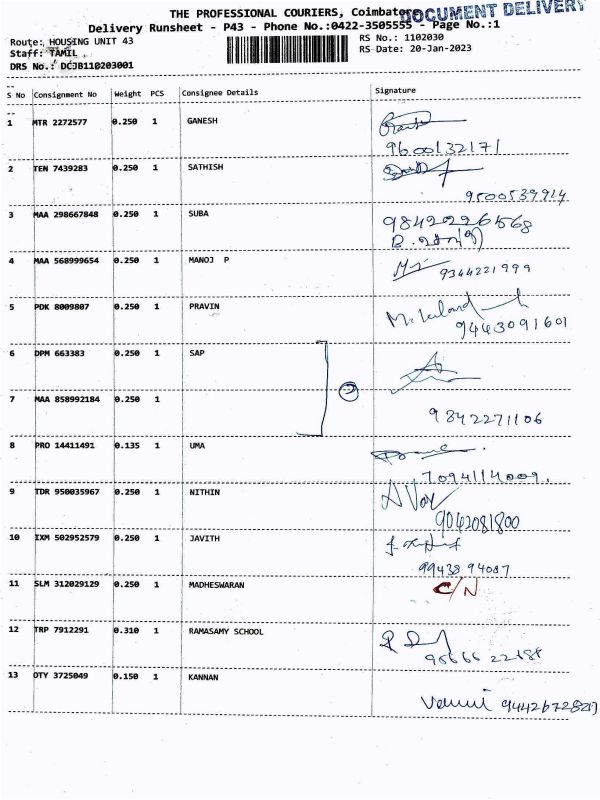 THE PROFESSIONAL COURIERS, Coimbatore
DOCUMENT DELIVERY
Delivery Runsheet - P43 - Phone No.:0422-3505555 - Page No.:1
Route: HOUSING UNIT 43
RS No.: 1102030
Staff: TAMIL
RS-Date: 20-Jan-2023
DRS No.: DCJB110203001
S No Consignment No Weight PCS Consignee Details Signature
1 MTR 2272577 0.250 1 GANESH
9600132171
2 TEN 7439283 0.250 1 SATHISH
9500539914
3 MAA 298667848 0.250 1 SUBA
B.
4 MAA 568999654 0.250 1 MANOJ P
9344221999
5 PDK 8009807 0.250 1 PRAVIN
9443091601
6 DPM 663383 0.250 1 SAP
2
7 MAA 858992184 0.250 1
9842271106
8 PRO 14411491 0.135 1 UMA
7094114009.
9 TDR 950035967 0.250 1 NITHIN
9042081800
10 IXM 502952579 0.250 1 JAVITH
99438 94087
11 SLM 312029129 0.250 1 MADHESWARAN
C/N
12 TRP 7912291 0.310 1 RAMASAMY SCHOOL
13 OTY 3725049 0.150 1 KANNAN